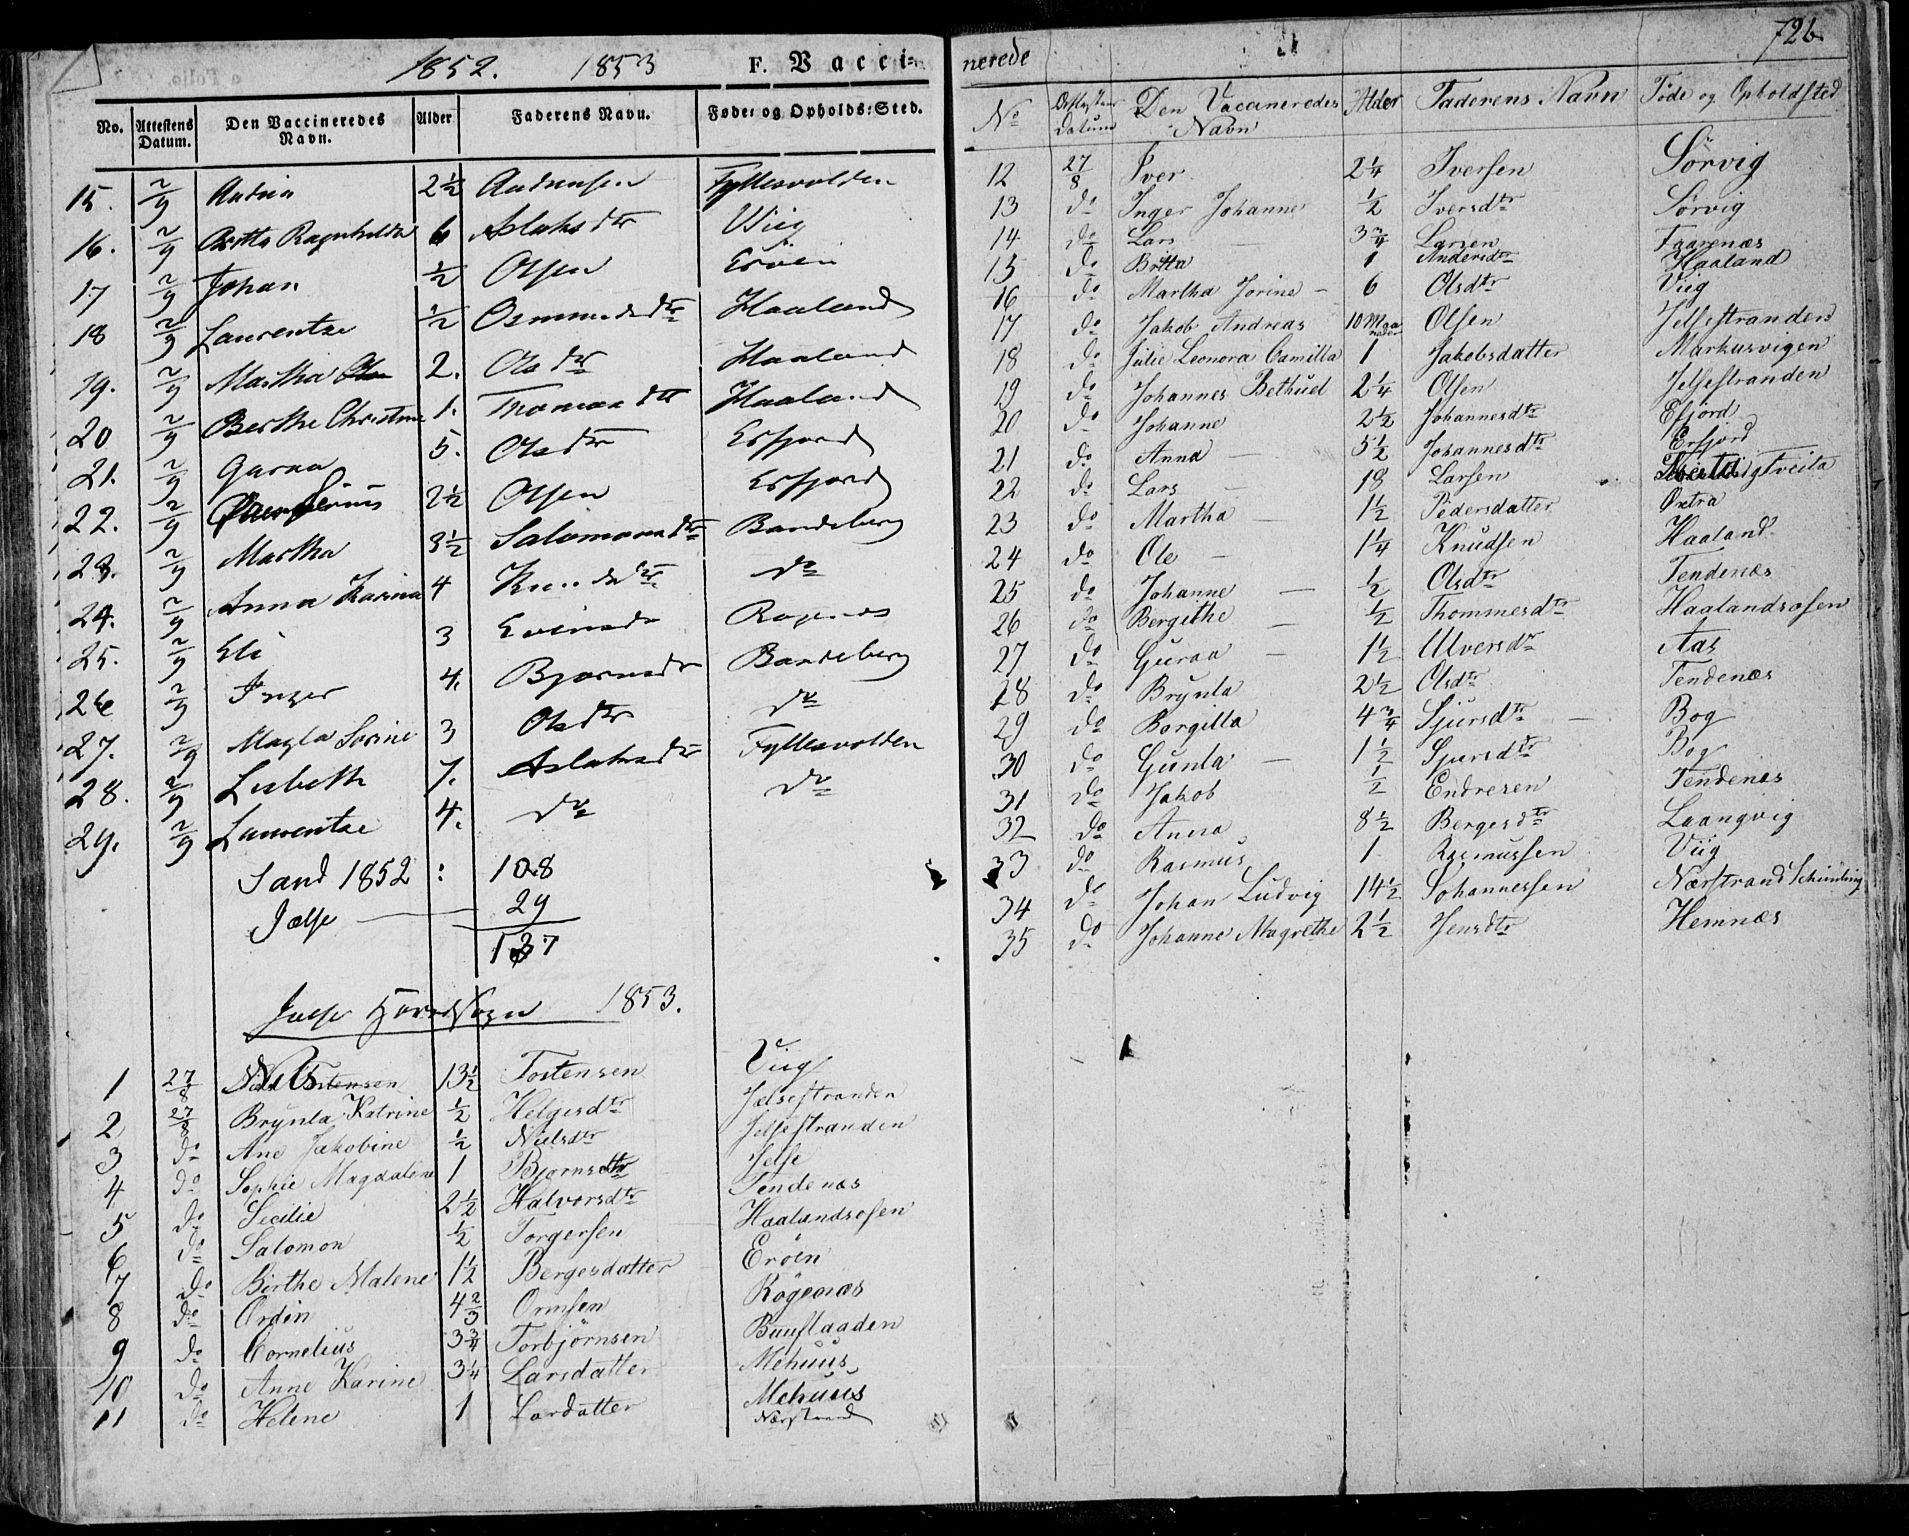 1852. 1853 F. Vacci-
No. Attestens Datum. Den Vaccineredes Navn. Alder Faderens Navn. Føde- og Opholds-Sted.
15. 2/9 2½ Fyllesvolden
16. 2/9 Ragnhilda 6 Aslaksdtr Viig
17 2/9 Johan ½ Olsen Erøen
18 2/9 Laurentze ½ Osmundsdtr Haaland
19. 2/9 Martha 2. Olsdtr Haaland
20 2/9 Berthe Christine 1. Haaland
21. 2/9 Guraa 5. Olsdtr Erfjord
22. 2/9 2½ Olsen Erfjord
23. 2/9 Martha 3½ Salomonsdtr Bandeberg
24. 2/9 Anna Karina 4 Knudsdtr do
25. 2/9 Eli 3
26 2/9 Inger 4. Bjørnsdtr Bandeberg
27. 2/9 Magla Sorine 3 Olsdtr do
28. 2/9 Lisbeth 7. Aslaksdtr Fyllesvolden
29. 2/9 Laurentze 4. do do
Sand 1852 : 108
Jælse 29
137
Jælse Hovedsogn 1853.
1 27/8 Nils 13½ Tostensen Viig
2 27/8 Brynla Katrine ½ Helgesdtr Jelsestranden
3 do Ane Jakobine ½ Nielsdtr Jelsestranden
4 do Sophie Magdalene 1 Bjørnsdtr Jelse
5 do Secilie 2½ Halvorsdtr Tendenæs
6 do Salomon ½ Torgersen Haalandsosen
7 do Birthe Malene 1½ Bergesdatter Erøen
8 do Ordin 4⅔ Ormsen Røgenæs
9 do Cornelius 3¾ Torbjørnsen Buustaaden
10 do Anne Karine 3¼ Larsdatter Mehuus
11 do Helene 1 Lardatter Mehuus
Nærstrand
nerede 726
No Attestens datum Den Vaccineredes Navn Alder Faderens Navn Føde og Opholdsted
12 27/8 Iver 2¼ Iversen Sørvig
13 do Inger Johanne ½ Iversdtr Sørvig
14 do Lars 3¾ Larsen Faarenæs
15 do Britta 1 Andersdtr Haaland
16 do Martha Jorine 6 Olsdtr Viig
17 do Jakob Andreas 10 Maaneder Olsen Jelsestranden
18 do Julie Leonora Camilla 1 Jakobsdatter Markusvigen
19 do Johannes Bethuel 2¼ Olsen Jelsestranden
20 do Johanne 2½ Johannesdtr Efjord
21 do Anna 5½ Johannesdtr Erfjord
22 do Lars 18 Larsen
23 do Martha 1½ Pedersdatter Øxtra
24 do Ole 1¼ Knudsen Haaland
25 do Johanne ½ Olsdtr Tendenæs
26 do Bergithe ½ Thommesdtr Haalandsosen
27 do Guraa 1½ Ulversdtr Aas
28 do Brynla 2½ Olsdtr Tendenæs
29 do Borgilla 4¾ Sjursdtr Bog
30 do Gunla 1½ Sjursdtr Bog
31 do Jakob ½ Endresen Tendenæs
32 do Anna 8½ Bergesdtr Laangvig
33 do Rasmus 1 Rasmussen Viig
34 do Johan Ludvig 14½ Johannessen Nærstrand
35 do Johanne Magrethe 2½ Jensdtr Hemnæs